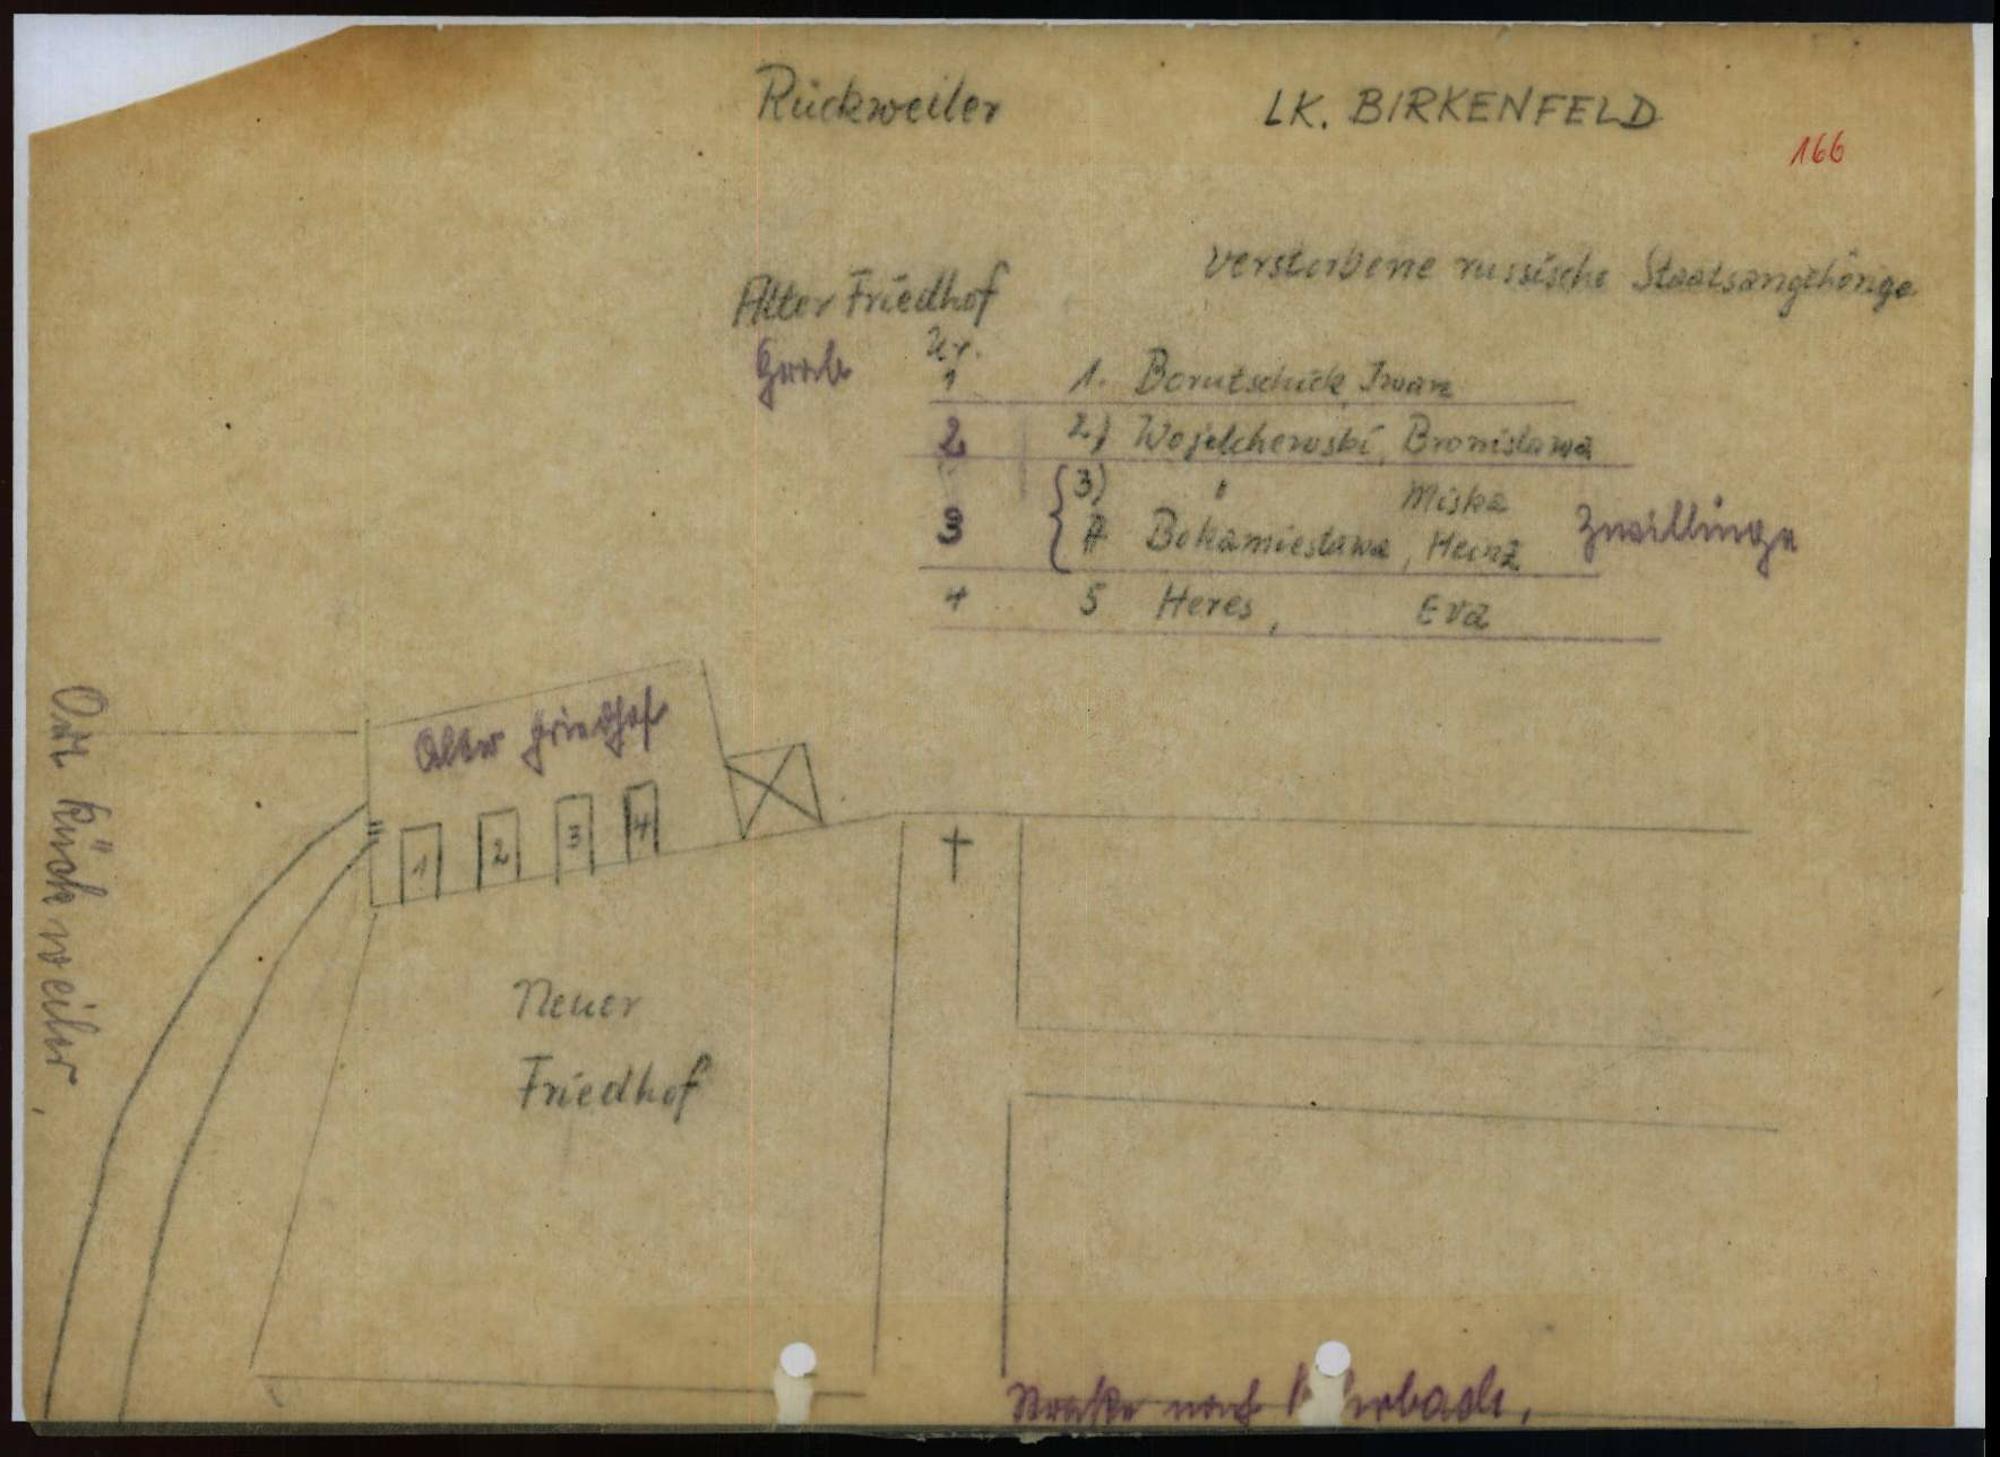 Rückweiler
LK. BIRKENFELD
166
verstorbene russische Staatsangehörige
Alter Friedhof
Grab Nr.
1 1. Borutschick, Iwan
2 2) Wojelchewski, Bronislawa
3) " Miska
3 4 Bokamieslawa, Heinz Zwillinge
4 5 Heres, Eva
Alter Friedhof
1 2 3 4
Ort Rückweiler.
Neuer
Friedhof
Straße nach